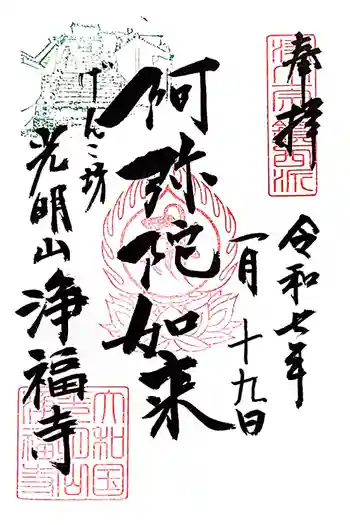 奉拝
令和七年
一月十九日
阿弥陀如来
げんこ坊
光明山
浄福寺
大和国
光明山
浄福寺